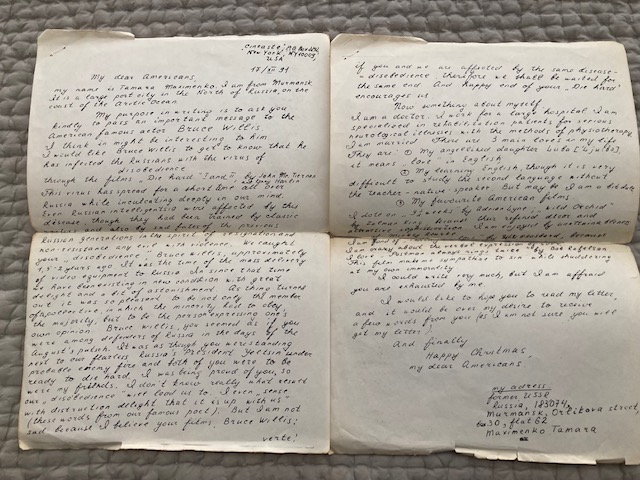 Cineaste P.O. Box
New York, NY 10009,
USA
17/XII 91
My dear Americans,
my name is Tamara Maximenko, I am from Murmansk
It is a large port city in the North of Russia, on the
coast of the Arctic Ocean.
My purpose in writing is to ask you
kindly to pass an important message to the
American famous actor Bruce Willis
I think it might be interesting to him
I would like Bruce Willis to get to know that he
has infected the Russians with the virus of
disobedience
through the films "Die hard" I and II, by John McTiernan
This virus has spread for a short time all over
Russia while inculcating deeply in our mind.
Even Russian intelligentsia were affected by this
disease though they had been trained by classic
and also by sad fates of the previous
Russian generations in the spirit of resignation and
non resistance any evil with violence. We caught
your "disobedience", Bruce Willis, approximately
1,5-2 years ago. It was the time of the mass delivery
of video equipment to Russia. And since that time
we have been living in new condition with great
delight and a bit of astonishment. As thing turned
out it was so pleasant to be not only the member
of collective, in which the minority has to obey
the majority, but to be the person expressing one's
own opinion. Bruce Willis, you seemed as if you
were among defenders of Russia in the days of the
August's putish. It was as though you were standing
next to our fearless Russia's President Yeltsin under
probable enemy fire and both of you were to be
ready to die hard. I was being proud of you, so
were my friends. I don't know really what resort
our "disobedience" will lead us to. I even "sense
with distruction delight that it is up with us"
(these words from our famous poet). But I am not
sad because I believe your films, Bruce Willis;
verte!
if you and we are affected by the same disease -
- disobedience, therefore we shall be waited for
the same end. And happy end of your "Die hard"
encourages us
Now something about myself
I am a doctor. I work for a large hospital. I am
specialized in rehabilitation patients for serious
neurological illnesses with the methods of physiotherapy
I am married. There are 3 main loves in my life
They are: ① My angelished daughter Luba
it means "love" in English
② My learning English, though it is very
difficult to study the second language without
the teacher-native speaker. But may be I am a bit dog
③ My favourite American films
I dote on "9½ weeks" by Adrian Lyne, "Wild Orchid"
by Zalman King because their refined decor and
about the verbal expression of
I love "Postman always rings twice" by Bob Rafelson
This film made me nothing to win while shuddering
at my own immorality
I could write very much, but I am affraid
you are exhausted by me.
I would like to hope you to read my letter,
and it would be over my desire to receive
a few words from you (as I am not sure you will
get my letter).
And finally
Happy Christmas
my dear Americans
my adress
former USSR
Russia, 183074,
Murmansk, Orlikova street,
30, flat 62
Maximenko Tamara